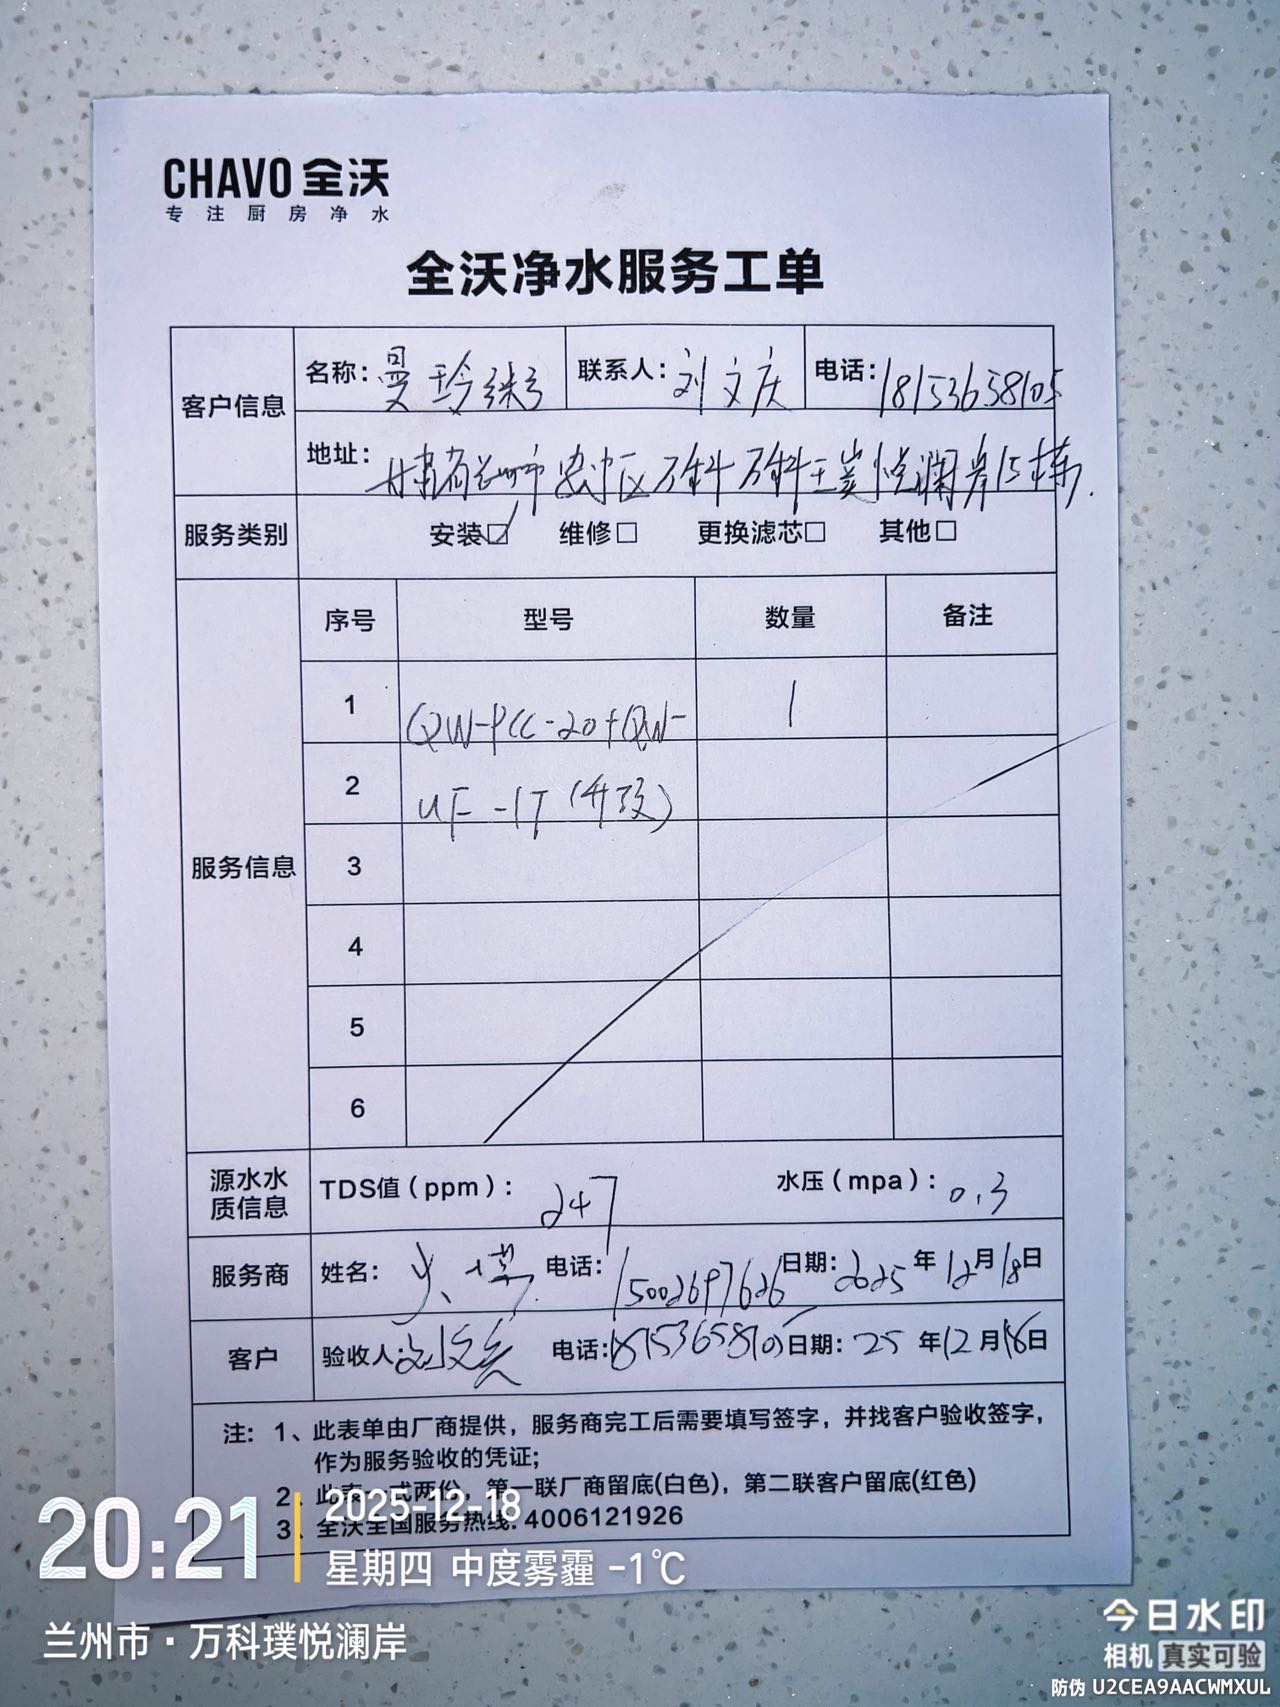 CHAVO 全沃
专注厨房净水
全沃净水服务工单
客户信息
名称：曼玲粥 联系人：刘文庆 电话：18153658105
地址：甘肃省兰州市 区万科万科璞悦澜岸15栋
服务类别 安装☑ 维修□ 更换滤芯□ 其他□
服务信息
序号 型号 数量 备注
1 QW-PCC-20+QW- 1
2 UF-1T
3
4
5
6
源水水质信息 TDS值（ppm）：247 水压（mpa）：0.3
服务商 姓名： 电话：15002697626 日期：2025年12月18日
客户 验收人： 电话：18153658105 日期：25年12月18日
注：1、此表单由厂商提供，服务商完工后需要填写签字，并找客户验收签字，
作为服务验收的凭证；
2、此表一式两份，第一联厂商留底(白色)，第二联客户留底(红色)
3、全沃全国服务热线：4006121926
20:21
2025-12-18
星期四 中度雾霾 -1℃
兰州市·万科璞悦澜岸
今日水印
相机 真实可验
防伪 U2CEA9AACWMXUL